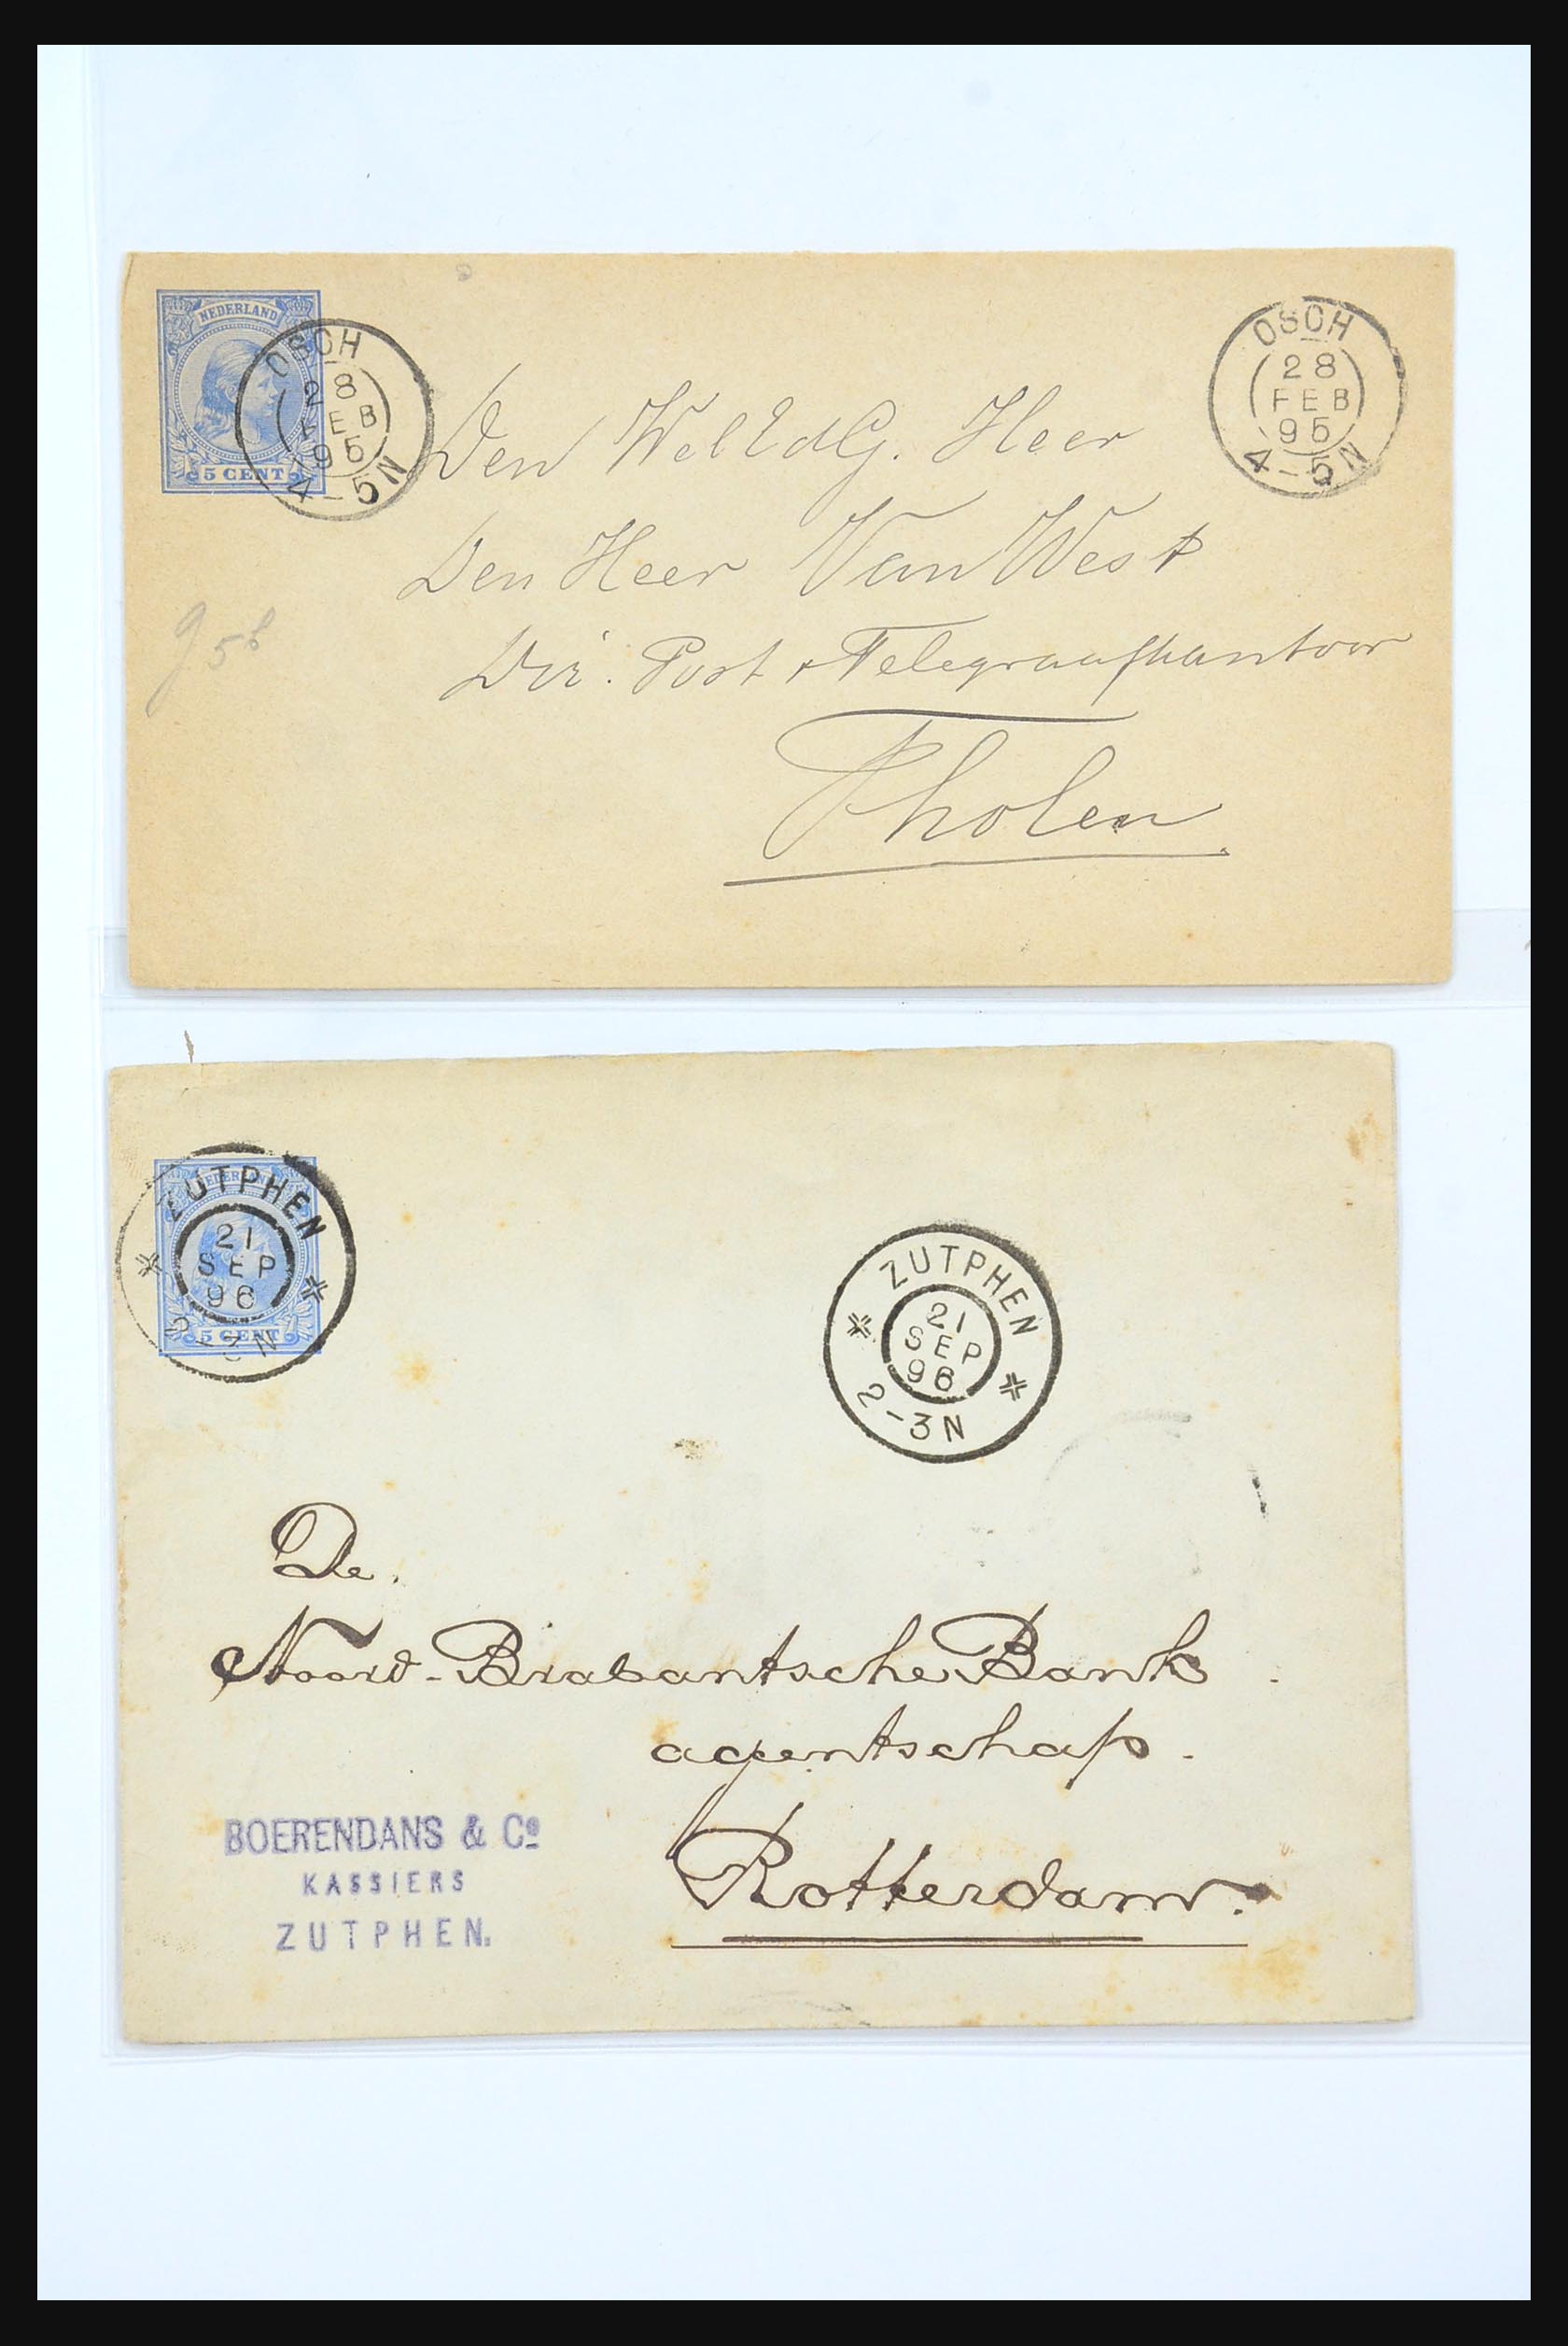 NEDERLAND
5 CENT
OSCH
28
FEB
95
4-5N
OSCH
28
FEB
95
4-5N
Den WelEdG. Heer
Den Heer Van West
Dir. Post & Telegraafkantoor
Tholen
NEDERLAND
5 CENT
ZUTPHEN
21
SEP
96
2-3N
ZUTPHEN
21
SEP
96
2-3N
De
Noord-Brabantsche Bank
agentschap.
Rotterdam.
BOERENDANS & Co
KASSIERS
ZUTPHEN.